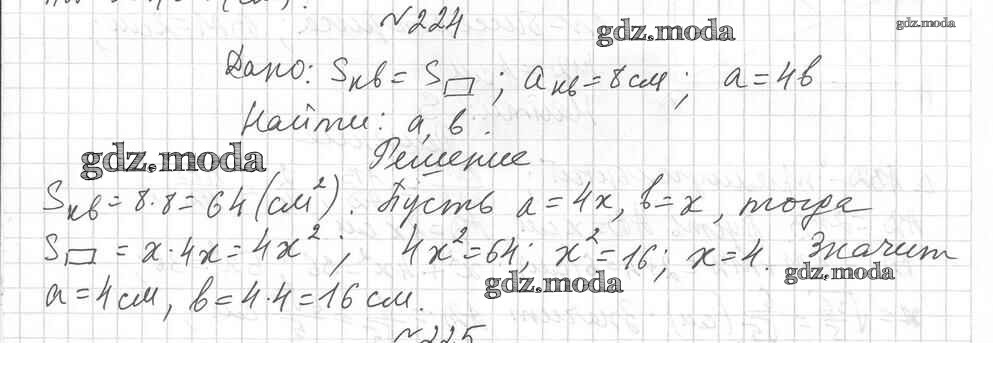 №224
gdz.moda
gdz.moda
Дано: Sкв = S▭; aкв = 8см; a = 4в
Найти: a, в.
gdz.moda
Решение
Sкв = 8·8 = 64 (см²). Пусть a = 4x, в = x, тогда
S▭ = x·4x = 4x²; 4x² = 64; x² = 16; x = 4. Значит
gdz.moda
gdz.moda
a = 4см, в = 4·4 = 16 см.
№225